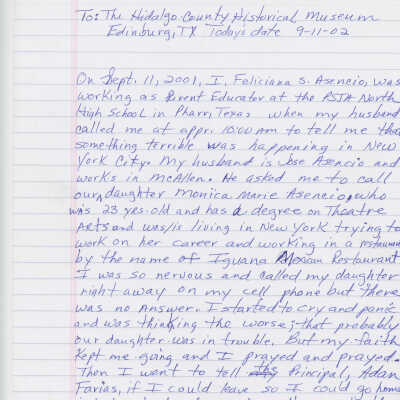 To: The Hidalgo County Historical Museum
Edinburg, TX Todays date 9-11-02
On Sept. 11, 2001, I, Feliciana S. Asencio, was
working as Parent Educator at the PSJA North
High School in Pharr, Texas when my husband
called me at appr. 10:00 AM to tell me that
something terrible was happening in New
York City. My husband is Jose Asencio and
works in McAllen. He asked me to call
our daughter Monica Marie Asencio, who
was 23 yrs. old and has a degree on Theatre
Arts and was/is living in New York trying to
work on her career and working in a restaurant
by the name of Iguana Mexican Restaurant
I was so nervous and called my daughter
right away on my cell phone but there
was no answer. I started to cry and panic
and was thinking the worse; that probably
our daughter was in trouble. But my faith
kept me going and I prayed and prayed.
Then I went to tell the Principal, Adan
Farias, if I could leave so I could go home